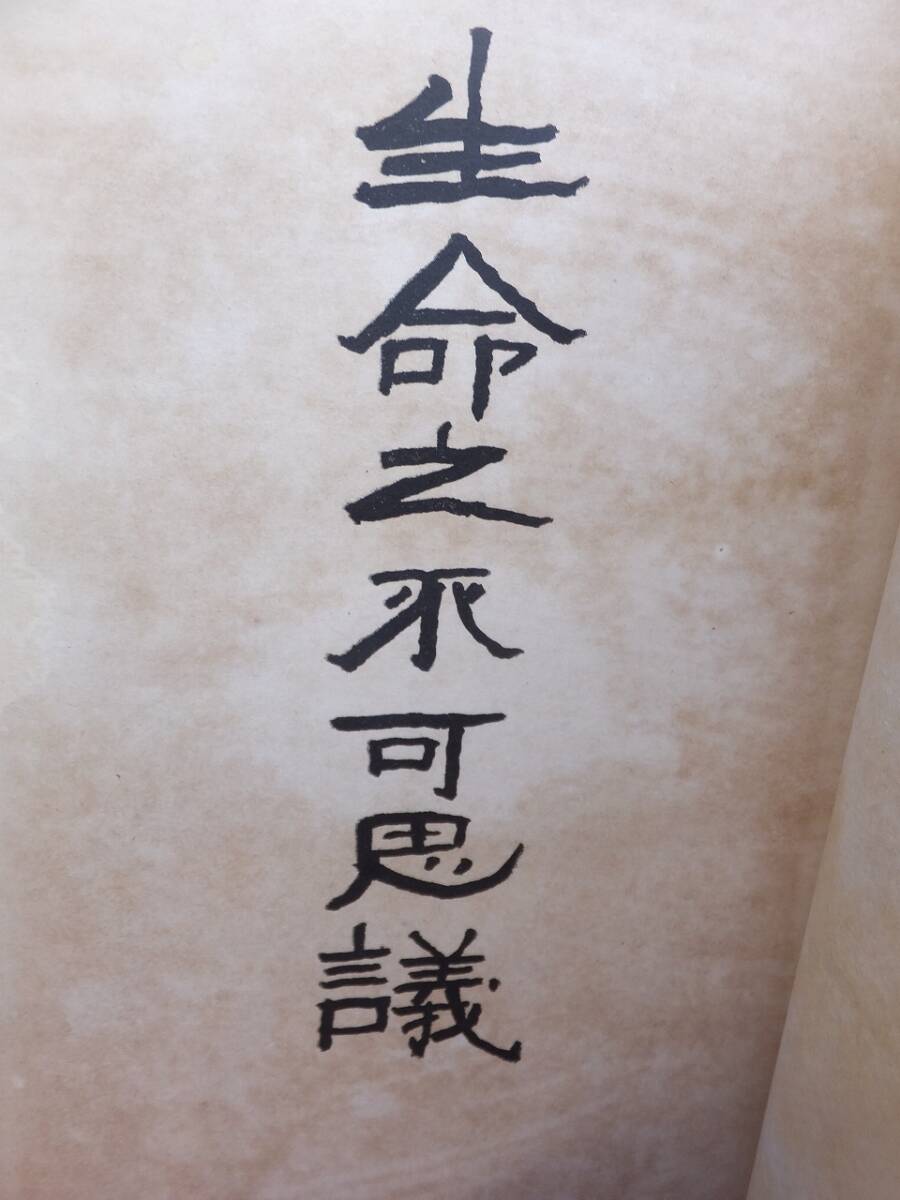 生命之不可思議